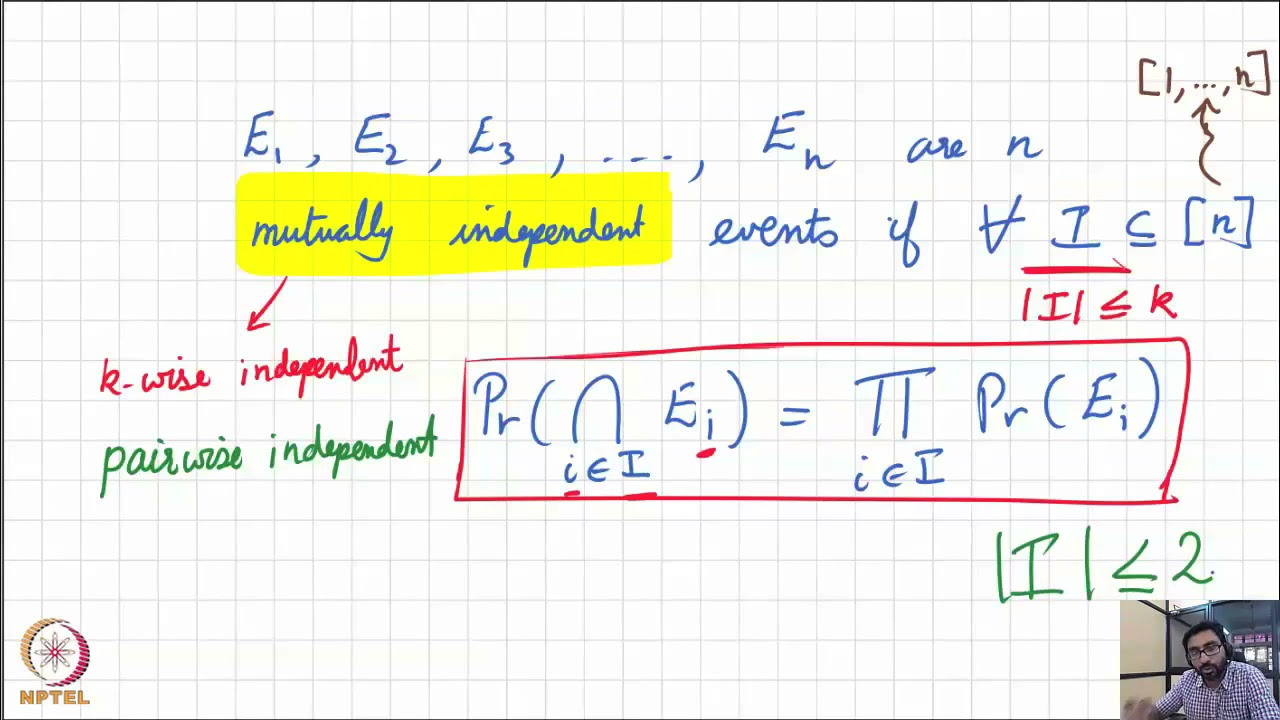 [1, ..., n]
E₁, E₂, E₃, ...., Eₙ are n
mutually independent events if ∀ I ⊆ [n]
|I| ≤ k
k-wise independent
pairwise independent
Pr(⋂ Eᵢ) = ∏ Pr(Eᵢ)
i∈I i∈I
|I| ≤ 2.
NPTEL